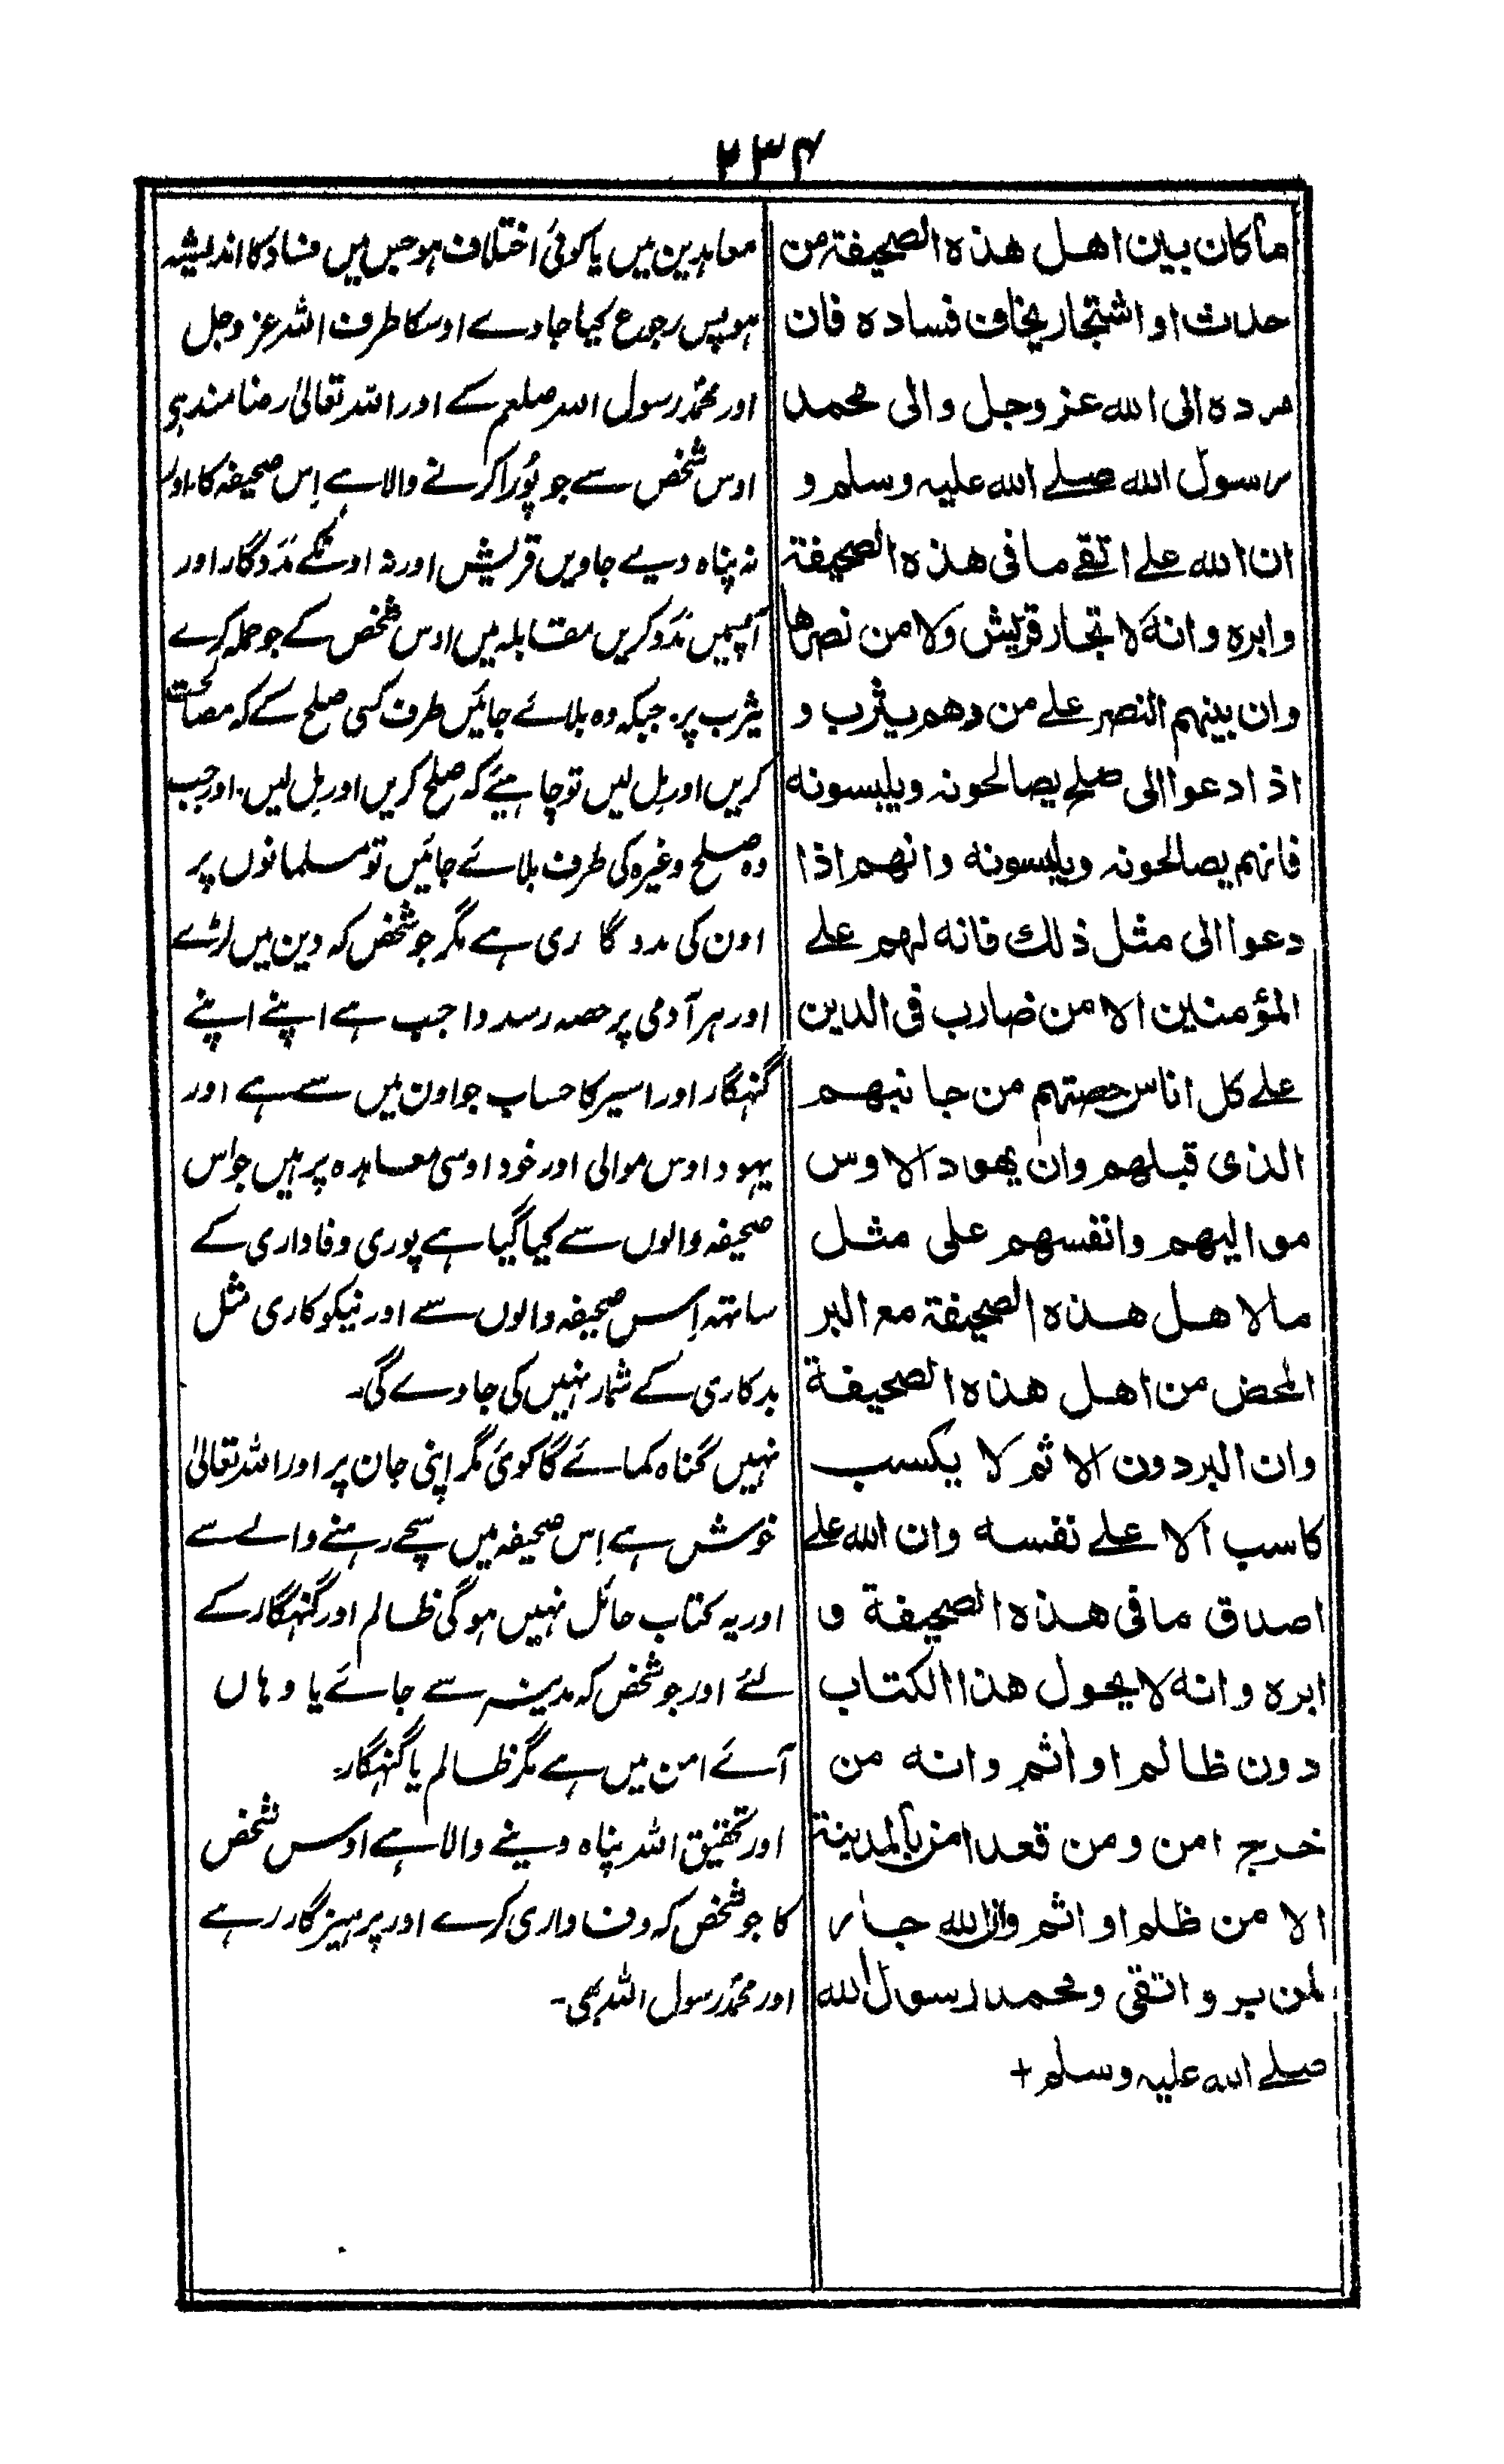 ۲۳۴
ما كان بين اهل هذه الصحيفة من
حدث او اشتجار يخاف فساده فان
مرده الى الله عز وجل والى محمد
رسول الله صلے الله عليه وسلم و
ان الله علے اتقے ما فى هذه الصحيفة
وابره وانه لا تجار قريش ولا من نصرها
وان بينهم النصر علے من دهم يثرب و
اذا دعوا الى صلح يصالحونه ويلبسونه
فانهم يصالحونه ويلبسونه وانهم اذا
دعوا الى مثل ذلك فانه لهم علے
المؤمنين الا من ضارب فى الدين
علے كل اناس حصتهم من جانبهم
الذى قبلهم وان يهود الاوس
مواليهم وانفسهم على مثل
ما لاهل هذه الصحيفة مع البر
المحض من اهل هذه الصحيفة
وان البر دون الاثم لا يكسب
كاسب الا علے نفسه وان الله علے
اصدق ما فى هذه الصحيفة و
ابره وانه لا يحول هذا الكتاب
دون ظالم او اثم وانه من
خرج امن ومن قعد امن بالمدينة
الا من ظلم او اثم وان الله جار
لمن بر واتقى ومحمد رسول الله
صلے الله عليه وسلم +
معاہدین میں یا کوئی اختلاف ہو جس میں فساد کا اندیشہ
ہو پس رجوع کیا جاوے اوسکا طرف اللہ عز وجل
اور محمدؐ رسول اللہ صلعم کے اور اللہ تعالیٰ رضامند ہی
اوس شخص سے جو پُورا کرنے والا ہے اِس صحیفہ کا۔ اور
نہ پناہ دیے جاویں قریش اور نہ اونکے مَدَدگار اور
آپسمیں مَدَد کریں مقابلہ میں اوس شخص کے جو حملہ کرے
یثرب پر۔ جبکہ وہ بلائے جائیں طرف کسی صلح کے کہ مصالحت
کریں اور مِل لیں تو چاہیئے کہ صلح کریں اور مِل لیں۔ اور جب
وہ صلح وغیرہ کی طرف بلائے جائیں تو مسلمانوں پر
اون کی مددگاری ہے مگر جو شخص کہ دین میں لڑے
اور ہر آدمی پر حصہ رسد واجب ہے اپنے اپنے
گنہگار اور اسیر کا حساب جو اون میں سے ہے اور
یہود اوس موالی اور خود اوسی معاہدہ پر ہیں جو اس
صحیفہ والوں سے کیا گیا ہے پوری وفاداری کے
ساتہہ اِس صحیفہ والوں سے اور نیکوکاری مثل
بدکاری کے شمار نہیں کی جاوے گی۔
نہیں گناہ کمائے گا کوئی مگر اپنی جان پر اور اللہ تعالیٰ
خوش ہے اِس صحیفہ میں سچے رہنے والے سے
اور یہ کتاب حائل نہیں ہوگی ظالم اور گنہگار کے
لئے اور جو شخص کہ مدینہ سے جائے یا وہاں
آئے امن میں ہے مگر ظالم یا گنہگار۔
اور تحقیق اللہ پناہ دینے والا ہے اوس شخص
کا جو شخص کہ وفاداری کرے اور پرہیزگار رہے
اور محمدؐ رسول اللہ بھی۔